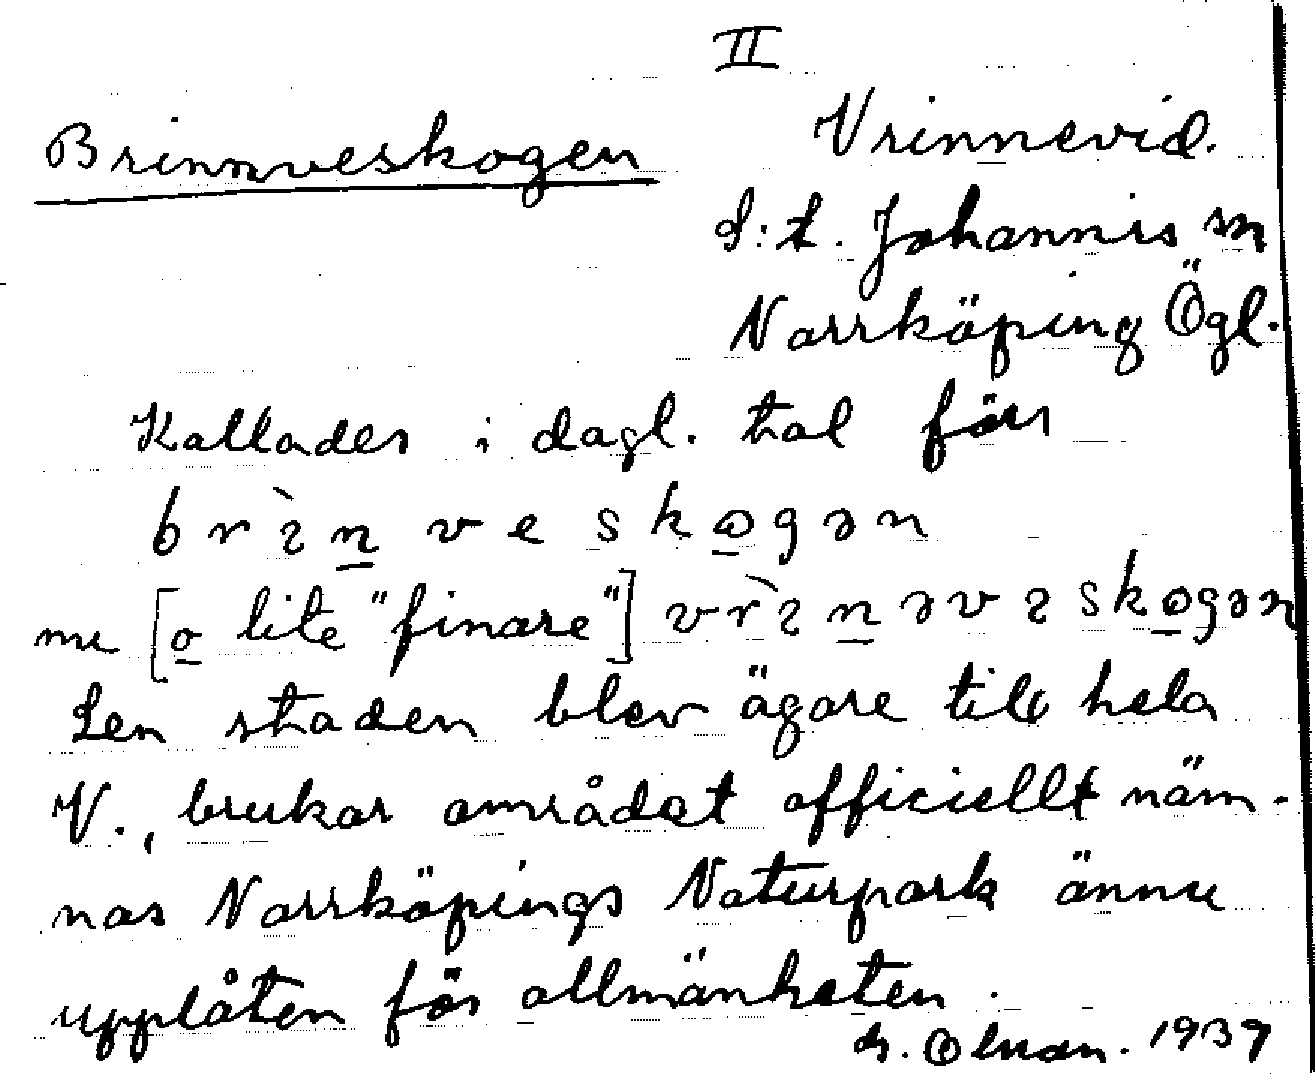 II
Brinnveskogen
Vrinnevid.
S:t. Johannis sn
Norrköping Ögl.
Kallades i dagl. tal förr
brìn̲veskɷ̲gən
nu [o lite "finare"] vrìn̲əveskɷ̲gən
Sen staden blev ägare till hela
V., brukar området officiellt näm-
nas Norrköpings Naturpark ännu
upplåten för allmänheten.
1937